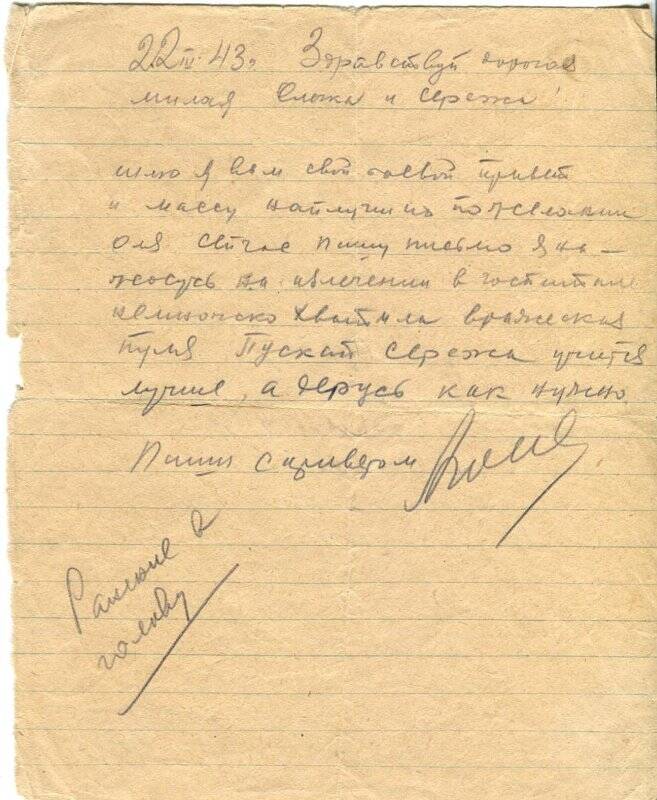 22 IV 43. Здравствуй дорогая
милая Олюка и Сережа!
шлю я Вам свой боевой привет
и массу наилучших пожеланий
Оля сейчас пишу письмо я на-
хожусь на излечении в госпитале
немножко хватила вражеская
пуля Пускай Сережа учится
лучше, а дерусь как нужно
Пиши с приветом
Ранение в
голову